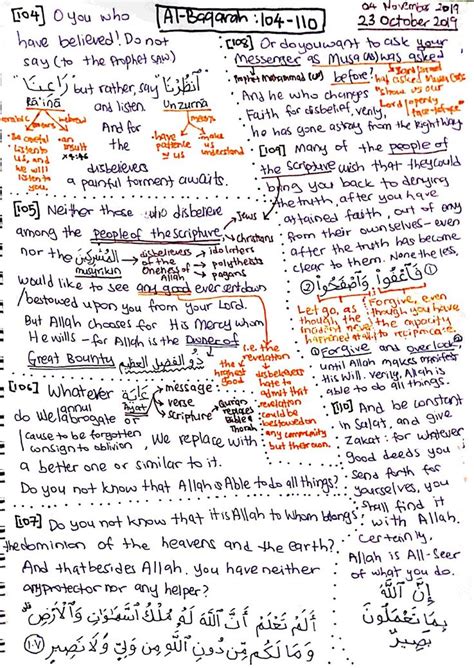 Al-Baqarah : 104-110
04 November 2019
23 October 2019
[104] O you who
have believed! Do not
say (to the Prophet SAW)
رَاعِنَا but rather, say أنظُرْنَا
Rā'inā and listen. Unzurna
Arabic
Hebrew
means
means
Be careful
listen to
us, and
he will
listen to
you.
an
insult
* 4:46
And for
the
disbelievers
painful torment awaits.
have
patience
with us
make
us
understand
[105] Neither those who disbelieve
among the people of the scripture
Jews
Christians
nor the المُشْرِكِينَ
musyrikin
disbelievers
of the
Oneness of
Allah
idolators
polytheists
pagans
would like to see any good ever sent down
bestowed upon you from your Lord.
But Allah chooses for His Mercy whom
He wills - for Allah is the Owner of
Great Bounty ذُو الفَضْلِ العَظِيمِ
the
highest
good
i.e. the
revelation
disbelievers
hate to
admit that
revelation
could be
bestowed on
any community
but theirs
[106] Whatever ءَايَة
Ayat
message
verse
scripture
Quran
replaces
Bible &
Torah
do We abrogate
annul
/cause to be forgotten, We replace with
consign to oblivion
a better one or similar to it.
Do you not know that Allah is Able to do all things?
[107] Do you not know that it is Allah to Whom belongs
the dominion of the heavens and the earth?
And that besides Allah, you have neither
any protector nor any helper?
أَلَمْ تَعْلَمْ أَنَّ ٱللَّهَ لَهُۥ مُلْكُ ٱلسَّمَٰوَٰتِ وَٱلْأَرْضِ
وَمَا لَكُم مِّن دُونِ ٱللَّهِ مِن وَلِيٍّ وَلَا نَصِيرٍ ١٠٧
[108] Or do you want to ask your
Messenger as Musa (AS) was asked
Prophet Muhammad (SAW)
before?
asked Musa (AS)
"Show us our
Lord openly
face-to-face"
And he who changes
Faith for disbelief, verily,
he has gone astray from the Right Way
[109] Many of the people of
the Scripture wish that they could
bring you back to denying
the truth, after you have
attained faith, out of envy
from their ownselves - even
after the truth has become
clear to them. Nonetheless,
فَٱعْفُوا۟ وَٱصْفَحُوا۟
Let go, as
though the
incident never
happened
Forgive, even
though you have
the capacity
to reciprocate.
① Forgive and overlook ②
until Allah makes manifest
His Will. Verily, Allah is
able to do all things.
[110] And be constant
in Salat, and give
Zakat: for whatever
good deeds you
send forth for
yourselves, you
shall find it
with Allah.
Certainly,
Allah is All-Seer
of what you do.
إِنَّ ٱللَّهَ
بِمَا تَعْمَلُونَ
بَصِيرٌ